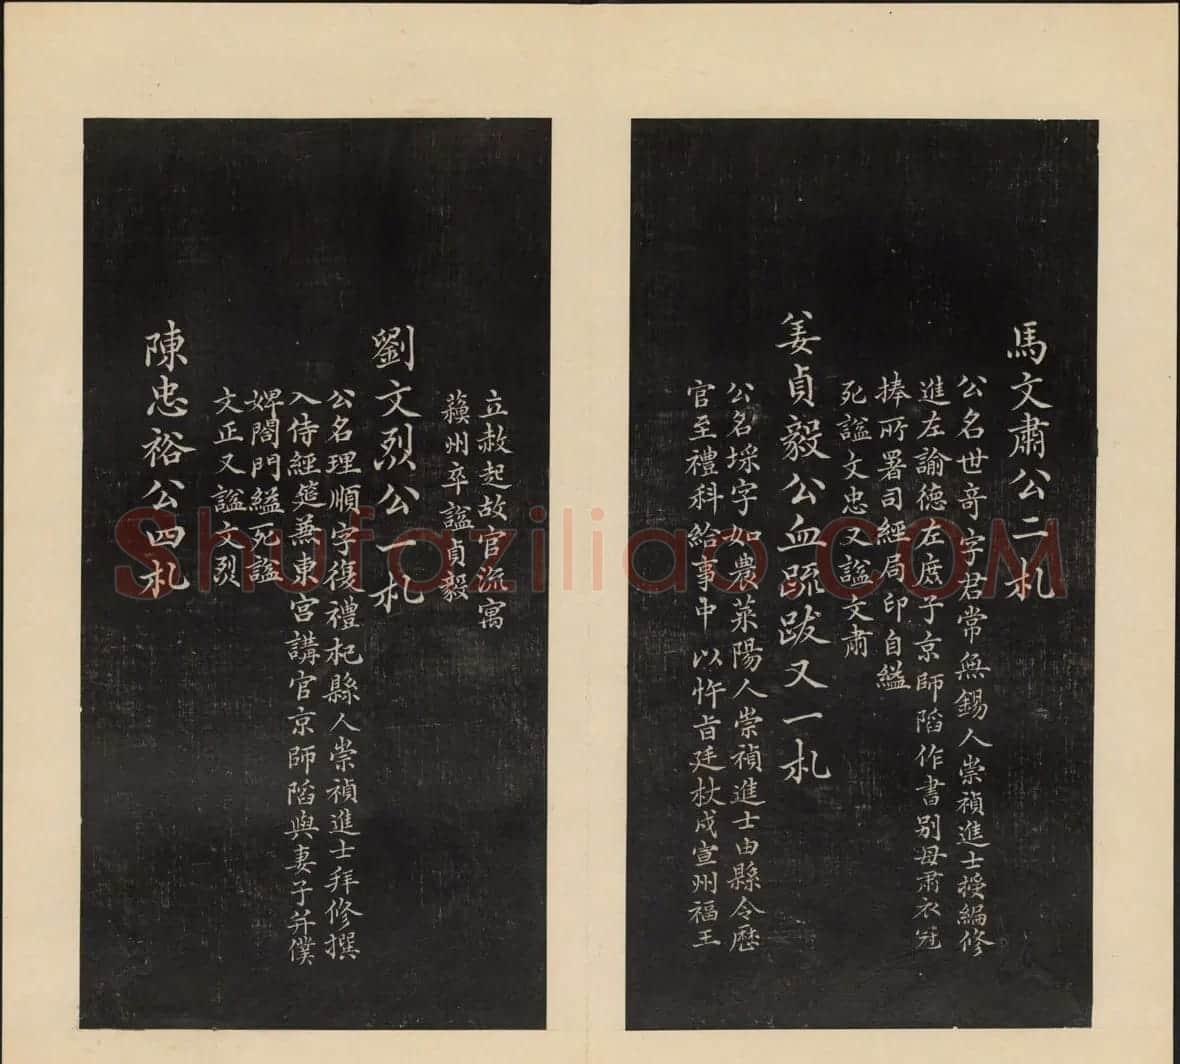 馬文肅公二札
公名世奇字君常無錫人崇禎進士授編修
進左諭德左庶子京師陷作書別母肅衣冠
捧所署司經局印自縊
死諡文忠又諡文肅
姜貞毅公血疏跋又一札
公名埰字如農萊陽人崇禎進士由縣令歷
官至禮科給事中以忤旨廷杖戍宣州福王
立赦起故官流寓
蘇州卒諡貞毅
劉文烈公一札
公名理順字復禮杞縣人崇禎進士拜修撰
入侍經筵兼東宮講官京師陷與妻子并僕
婢閤門縊死諡
文正又諡文烈
陳忠裕公四札
Shufaziliao.COM